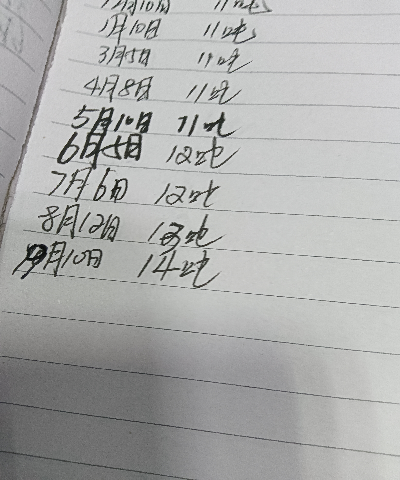 月10日 11吨
1月10日 11吨
3月5日 11吨
4月8日 11吨
5月10日 11吨
6月5日 12吨
7月6日 12吨
8月12日 13吨
9月10日 14吨